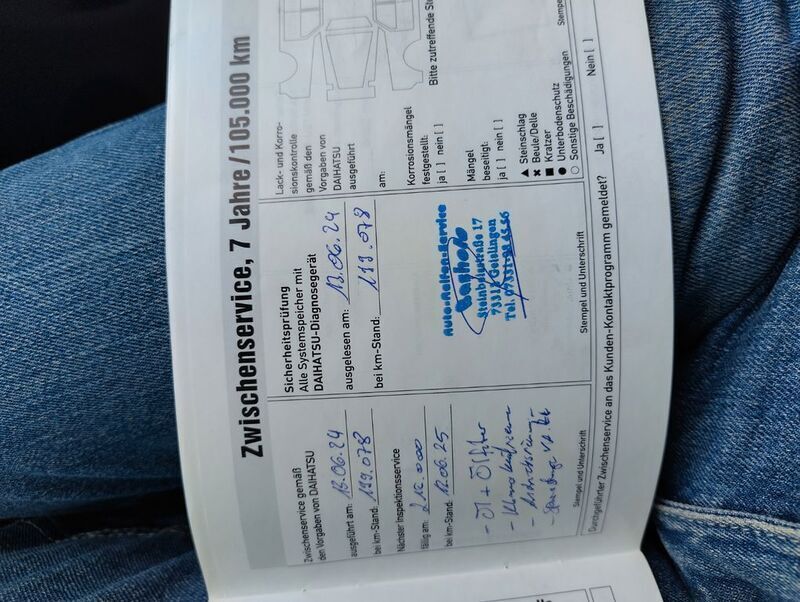 Zwischenservice, 7 Jahre/105.000 km
Zwischenservice gemäß
den Vorgaben von DAIHATSU
ausgeführt am: 13.06.24
bei km-Stand: 199.078
Nächster Inspektionsservice
fällig am: 214.000
bei km-Stand: 12.06.25
- Öl + Ölfilter
Stempel und Unterschrift
Sicherheitsprüfung
Alle Systemspeicher mit
DAIHATSU-Diagnosegerät
ausgelesen am: 13.06.24
bei km-Stand: 199.078
Auto-Reifen-Service
Steinbeisstraße 17
Geislingen
Tel.
Stempel und Unterschrift
Lack- und Korro-
sionskontrolle
gemäß den
Vorgaben von
DAIHATSU
ausgeführt
am:
Korrosionsmängel
festgestellt:
ja [ ] nein [ ]
Mängel
beseitigt:
ja [ ] nein [ ]
Bitte zutreffende
▲ Steinschlag
✖ Beule/Delle
■ Kratzer
● Unterbodenschutz
○ Sonstige Beschädigungen
Durchgeführter Zwischenservice an das Kunden-Kontaktprogramm gemeldet? Ja [ ] Nein [ ]